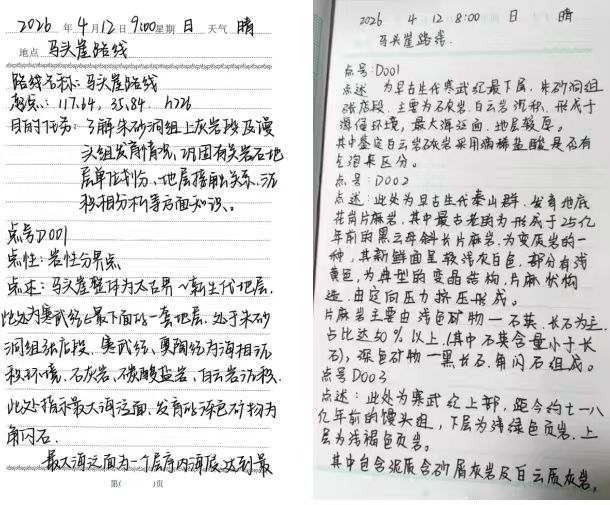 2026 年 4 月 12 日 9:00 星期 日 天气 晴
地点 马头崖路线
路线名称:马头崖路线
起点:117.64, 35.84. h226
目的任务:了解朱砂洞组上灰岩段及馒
头组发育情况,巩固有关岩石地
层单位划分、地层接触关系、沉
积相分析等方面知识。
点号D001
点性:岩性分界点
点述:马头崖整体为太古界~新生代地层.
此处为寒武纪最下面的一套地层.处于朱砂
洞组张店段.寒武纪、奥陶纪为海相沉
积环境.石灰岩、碳酸盐岩、白云岩沉积.
此处指示最大海泛面.发育的深色矿物为
角闪石.
最大海泛面为一个层序内海侵达到最
第( )页
2026 4 12 8:00 日 晴
马头崖路线.
点号:D001
点述 为早古生代寒武纪最下层.朱砂洞组
张店段.主要为石灰岩.白云岩沉积.形成于
海侵环境,最大海泛面.地层较厚.
其中鉴定白云岩灰岩采用稀盐酸是否有
气泡来区分.
点号:D002
点述:此处为早古生代泰山群.发育地底
花岗片麻岩,其中最古老的为形成于25亿
年前的黑云母斜长片麻岩.为变质岩的一
种,其新鲜面呈较浅灰白色.部分有浅
黄色,为典型的变晶结构.片麻状构
造.由定向压力挤压形成。
片麻岩主要由浅色矿物—石英.长石为主.
占比达50%以上.(其中石英含量小于长
石),深色矿物—黑长石.角闪石组成。
点号D003
点述:此处为寒武纪上部,距今约七一八
亿年前的馒头组,下层为浅绿色页岩.上
层为浅褐色页岩。
其中包含泥质含砂屑灰岩及白云质灰岩,